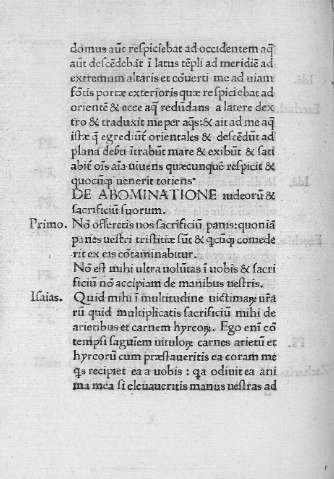 domus aūt respiciebat ad occidentem aq̄
aūt descēdebāt ī latus tēpli ad meridiē ad
extremum altaris et cōuerti me ad uiam
fōtis portæ exterioris quæ respiciebat ad
orientē & ecce aq̄ redūdans a latere dex
tro & traduxit me per aq̄s: & ait ad me aq̄
istæ q̄ egrediūt̄ orientales & descēdūt ad
plana deserti trabūt mare & exibūt & sati
abiēt oīs aīa uiuens quæcunquē respicit &
quocūq̄ uenerit toriens
DE ABOMINATIONE iudeorū &
sacrificiū suorum.
Primo. Nō offeretis nos sacrificiū panis: quoniā
panes uestri tristitiæ sūt & q̄cūq̄ comede
rit ex eis cōtaminabitur.
Nō est mihi ultra uolūtas ī uobis & sacri
ficiū nō accipiam de manibus uestris.
Isaias. Quid mihi ī multitudine uictimaꝝ ur̄a
rū quid multiplicatis sacrificiū mihi de
arietibus et carnem hyrcoꝝ. Ego enī cō
tempsi saguīem uituloꝝ carnes arietū et
hyrcorū cum præstaueritis ea coram me
q̄s recipiet ea a uobis : q̄a odiuit ea ani
ma mea si eleuaueritis manus uestras ad